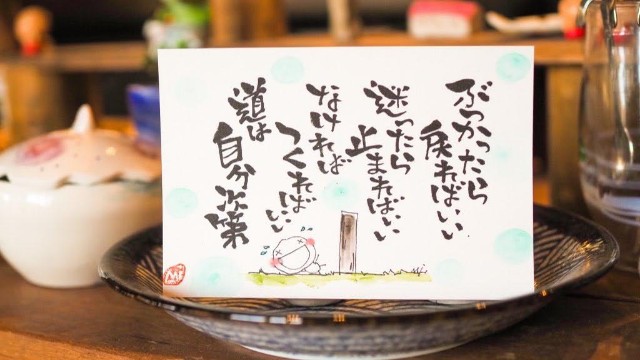 ぶつかったら
戻ればいい
迷ったら
止まればいい
なければ
つくればいい
道は
自分次第